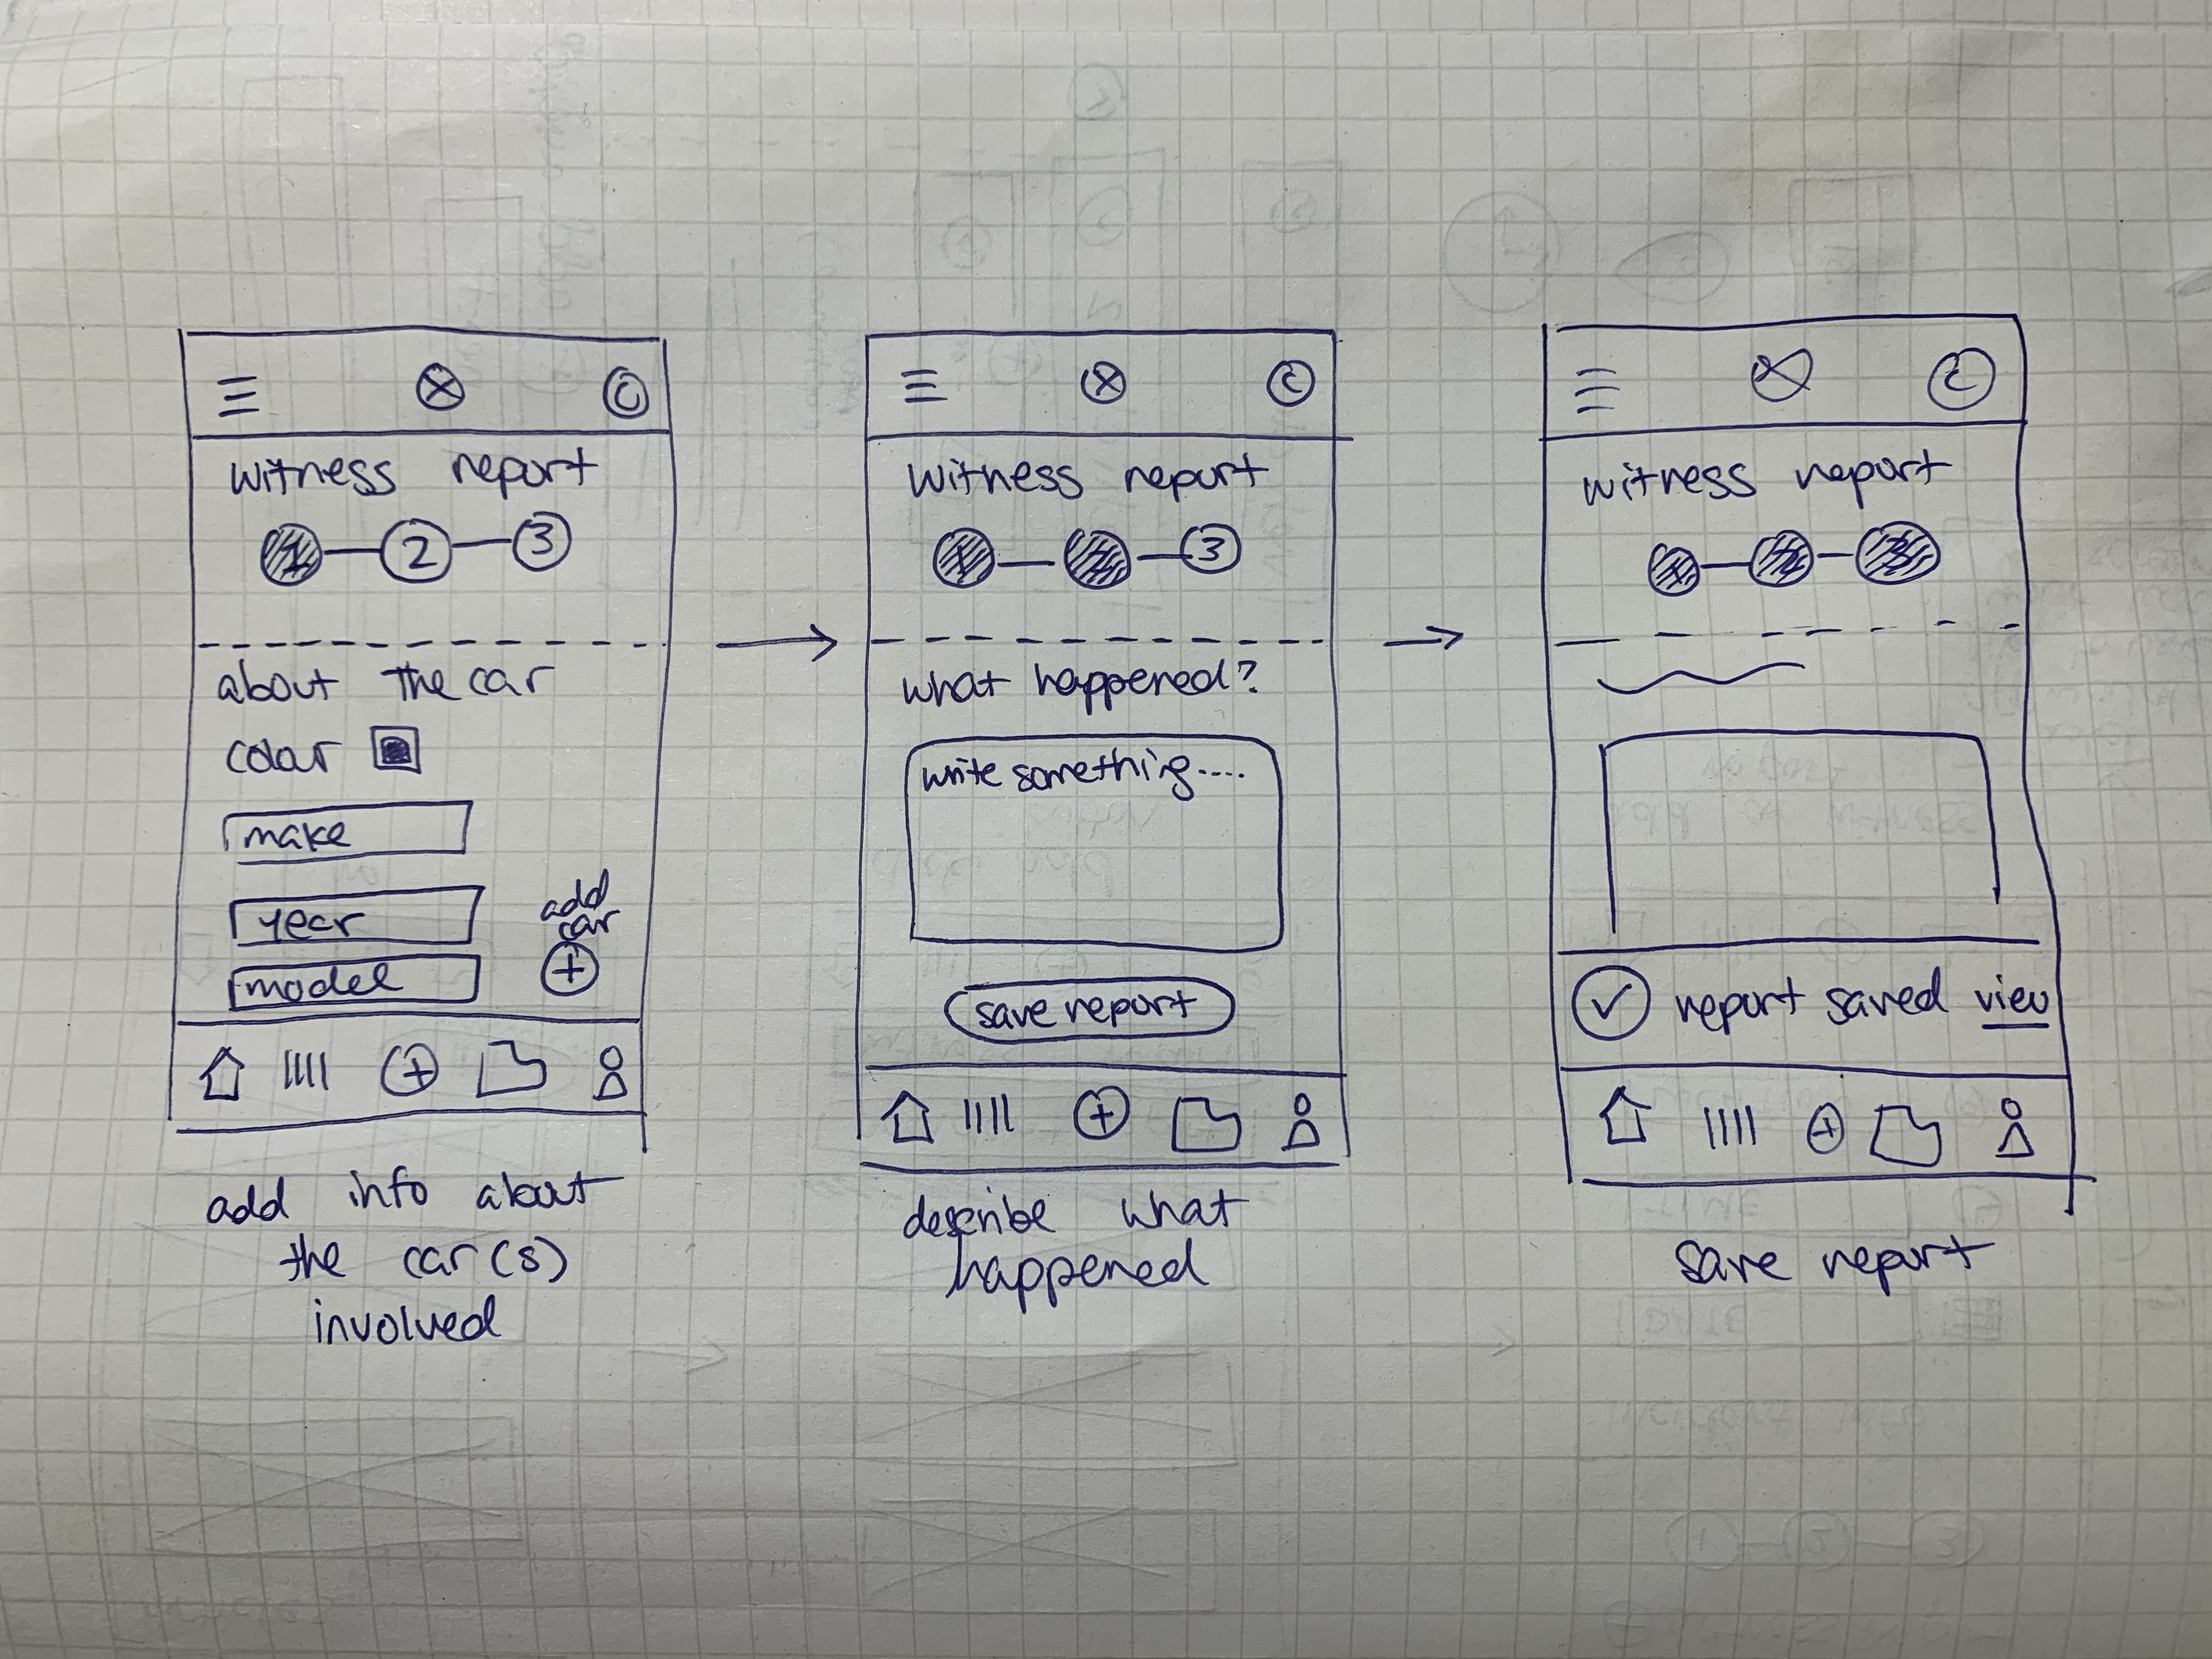 witness report
1 2 3
about the car
color
make
year
model
add
car
add info about
the car(s)
involved
witness report
1 2 3
what happened?
write something....
save report
describe what
happened
witness report
1 2 3
report saved view
save report